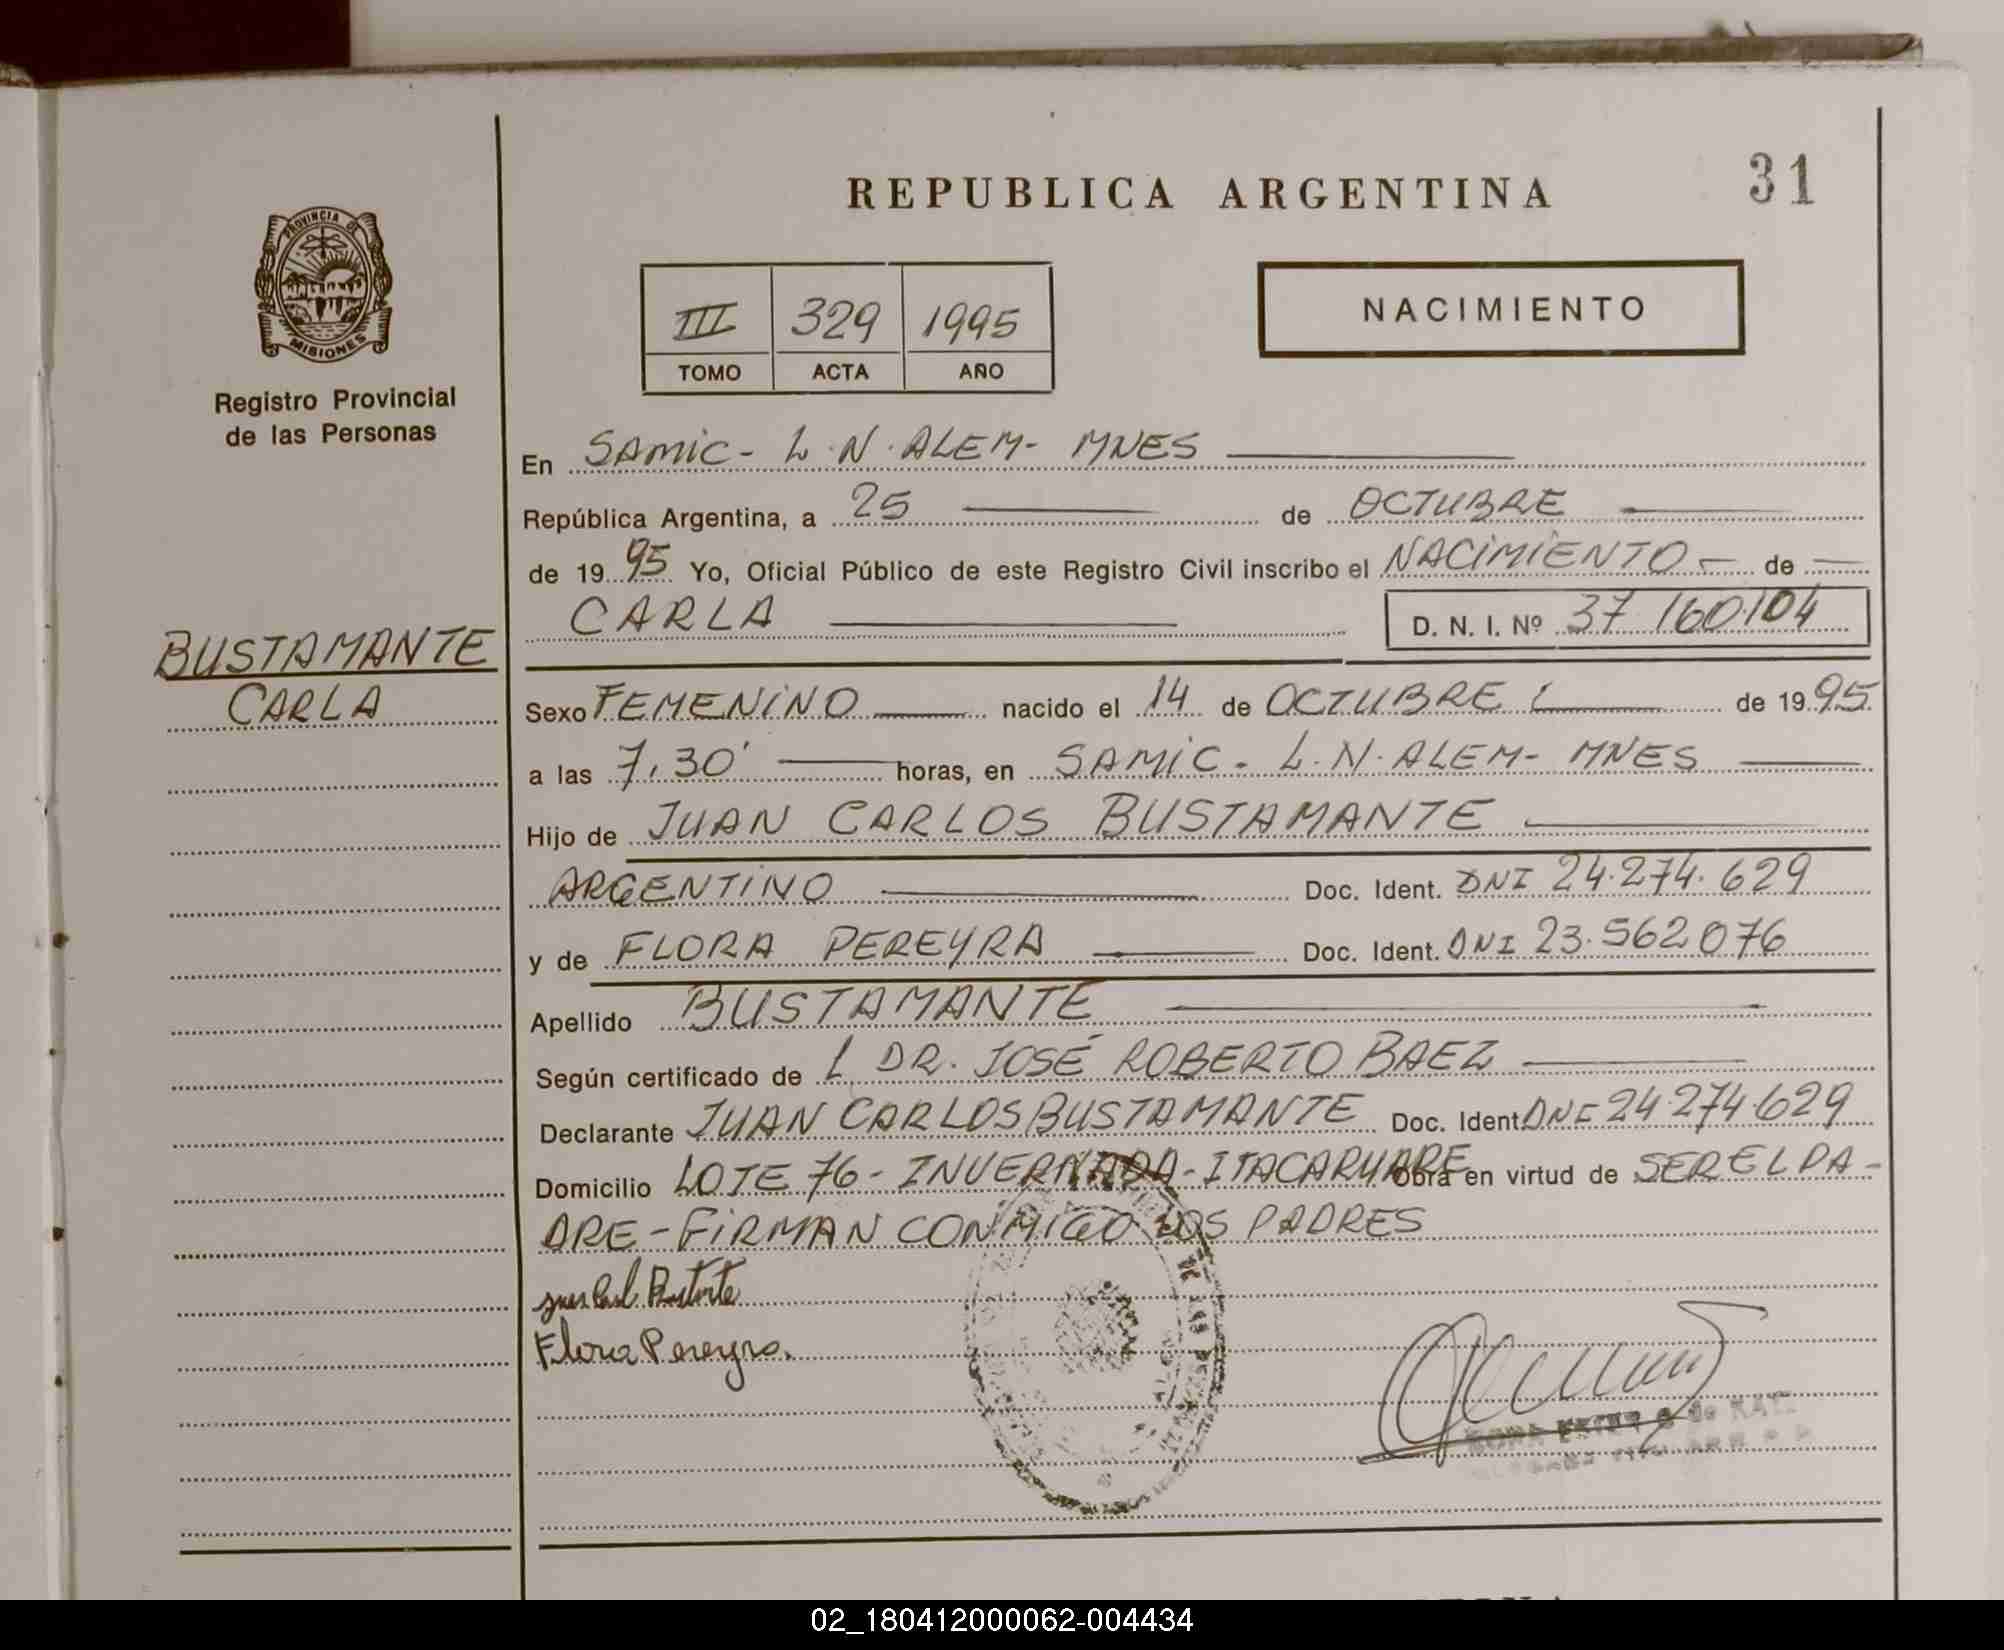 REPUBLICA ARGENTINA
31
PROVINCIA DE
MISIONES
Registro Provincial
de las Personas
III 329 1995
TOMO ACTA AÑO
NACIMIENTO
BUSTAMANTE
CARLA
En SAMIC - L.N. ALEM - MNES
República Argentina, a 25 de OCTUBRE
de 19 95 Yo, Oficial Público de este Registro Civil inscribo el NACIMIENTO - de
CARLA D. N. I. Nº 37.160.104
Sexo FEMENINO nacido el 14 de OCTUBRE de 19 95
a las 7,30' horas, en SAMIC - L.N. ALEM - MNES
Hijo de JUAN CARLOS BUSTAMANTE
ARGENTINO Doc. Ident. DNI 24.274.629
y de FLORA PEREYRA Doc. Ident. DNI 23.562076
Apellido BUSTAMANTE
Según certificado de L DR. JOSÉ ROBERTO BAEZ
Declarante JUAN CARLOS BUSTAMANTE Doc. Ident. DNI 24.274.629
Domicilio LOTE 76 - INVERNADA - ITACARUARE Obra en virtud de SER EL PA-
DRE - FIRMAN CONMIGO LOS PADRES
Flora Pereyra.
02_180412000062-004434